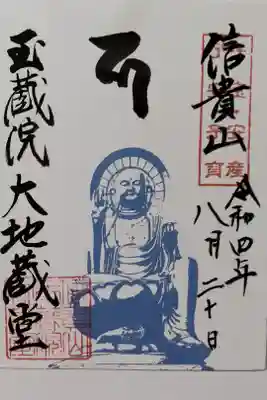 信貴山
令和四年
八月二十日
玉蔵院 大地蔵堂